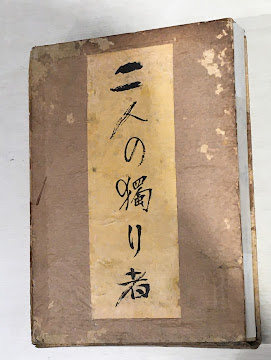 二人の獨り者